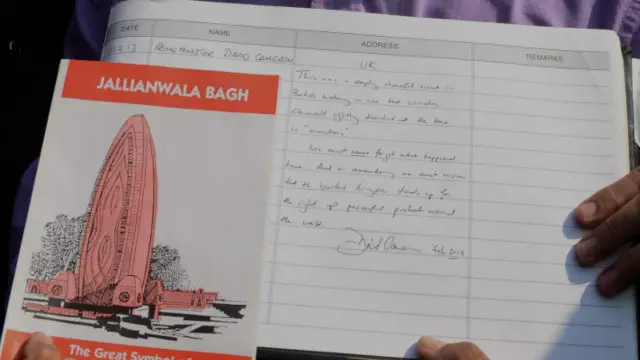 DATE NAME ADDRESS REMARKS
2.13 PRIME MINISTER DAVID CAMERON UK
This was a deeply shameful event in
British history – one that Winston
Churchill rightly described at the time
as "monstrous".
We must never forget what happened
here. And in remembering we must ensure
that the United Kingdom stands up for
the right of peaceful protest around
the world.
David Cameron Feb 2013
JALLIANWALA BAGH
The Great Symbol of